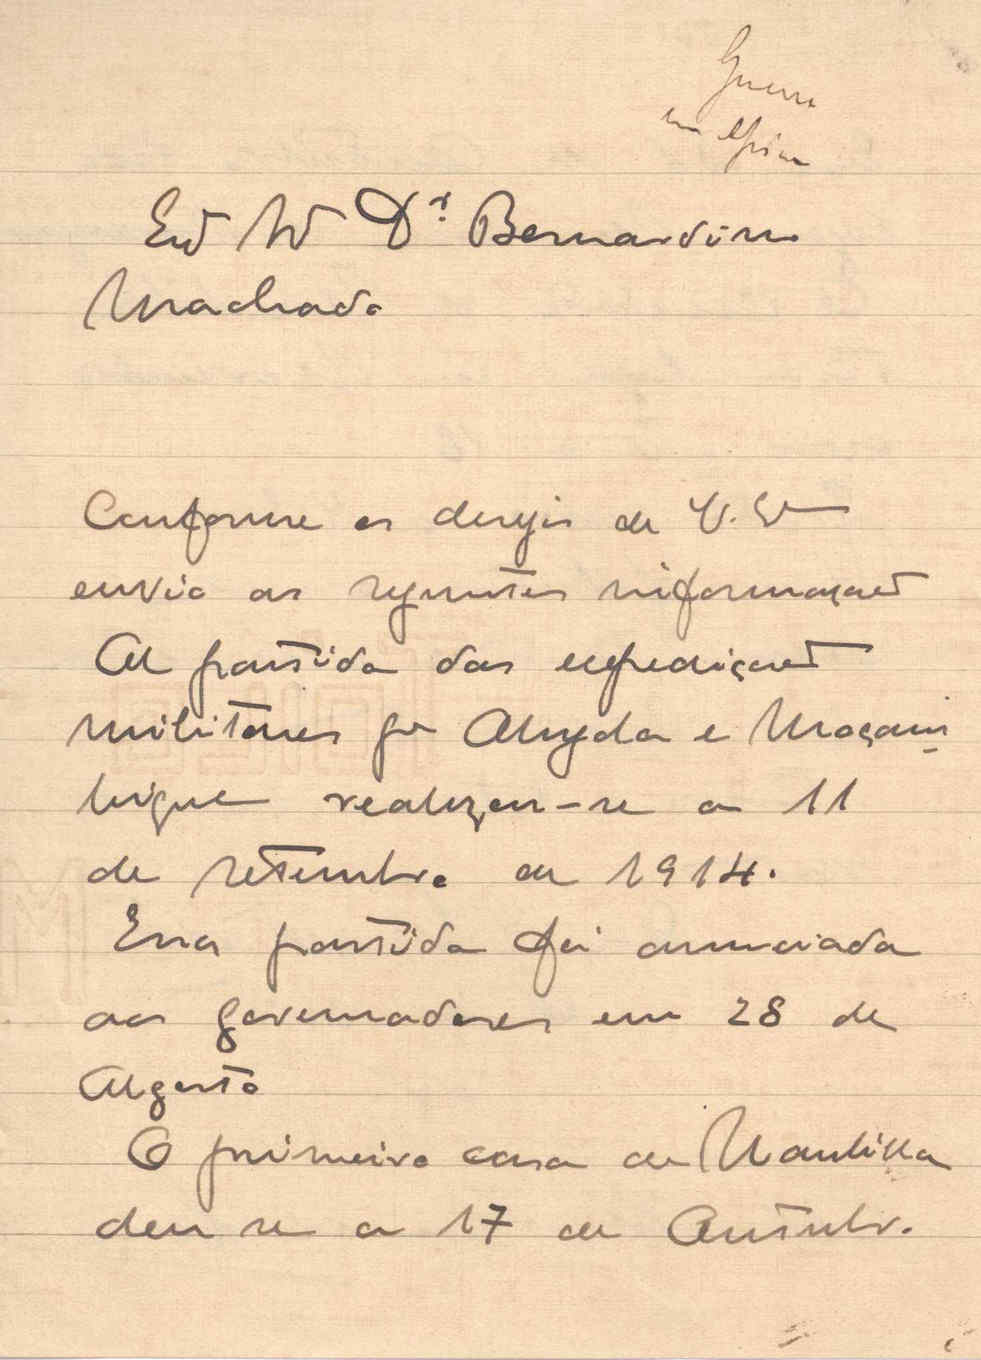 Guerra
em Africa
Exmo Sr Dr Bernardino
Machado
Conforme os desejos de V. Exa
envio as seguintes informações
A partida das expedições
militares pa Angola e Moçam
bique realizou-se a 11
de setembro de 1914.
Essa partida foi anunciada
aos governadores em 28 de
Agosto
O primeiro caso de Naulilla
deu se a 17 de Outubro